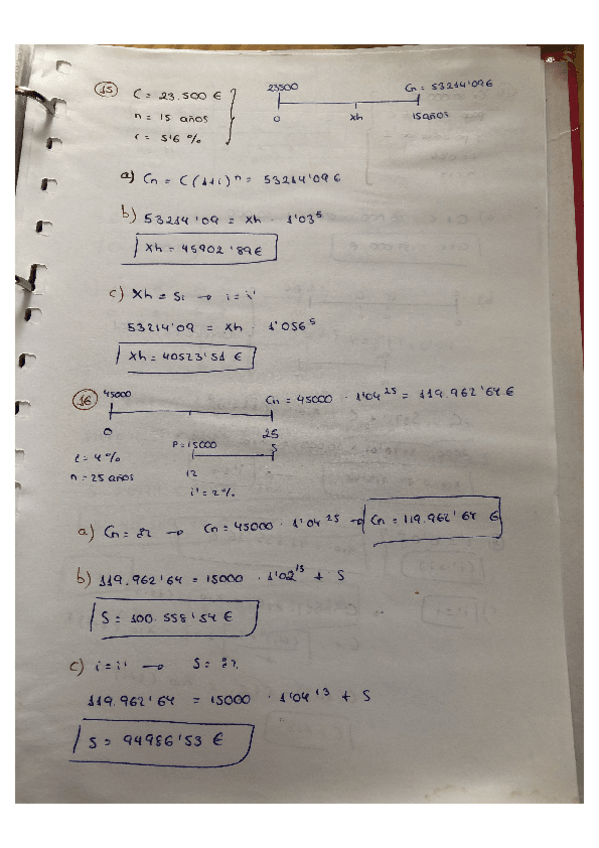 15 C = 23.500 €
n = 15 años
i = 5'6 %
23500 Cn = 53214'09€
0 Xh 15 años
a) Cn = C (1+i)ⁿ = 53214'09 €
b) 53214'09 = Xh · 1'03⁵
Xh = 45902'89€
c) Xh = Si → i = i'
53214'09 = Xh · 1'056⁵
Xh = 40523'51 €
16 45000 Cn = 45000 · 1'04²⁵ = 119.962'64 €
0 25
i = 4% P = 15000 S
n = 25 años 12
i' = 2%
a) Cn = ¿? → Cn = 45000 · 1'04²⁵ → Cn = 119.962'64 €
b) 119.962'64 = 15000 · 1'02¹³ + S
S = 100.558'54 €
c) i = i' → S = ¿?
119.962'64 = 15000 · 1'04¹³ + S
S = 94986'53 €